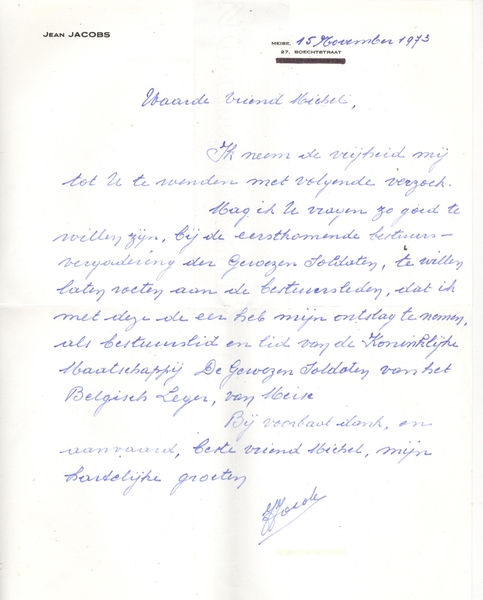 JEAN JACOBS
MEISE, 15 November 1973
27, BOECHTSTRAAT
Waarde vriend Michel,
Ik neem de vrijheid mij
tot U te wenden met volgende verzoek.
Mag ik U vragen zo goed te
willen zijn, bij de eerstkomende bestuurs-
vergadering der Gewezen Soldaten, te willen
laten weten aan de bestuursleden, dat ik
met deze de eer heb mijn ontslag te nemen,
als bestuurslid en lid van de Koninklijke
Maatschappij De Gewezen Soldaten van het
Belgisch Leger, van Meise
Bij voorbaat dank, en
aanvaard, beste vriend Michel, mijn
hartelijke groeten